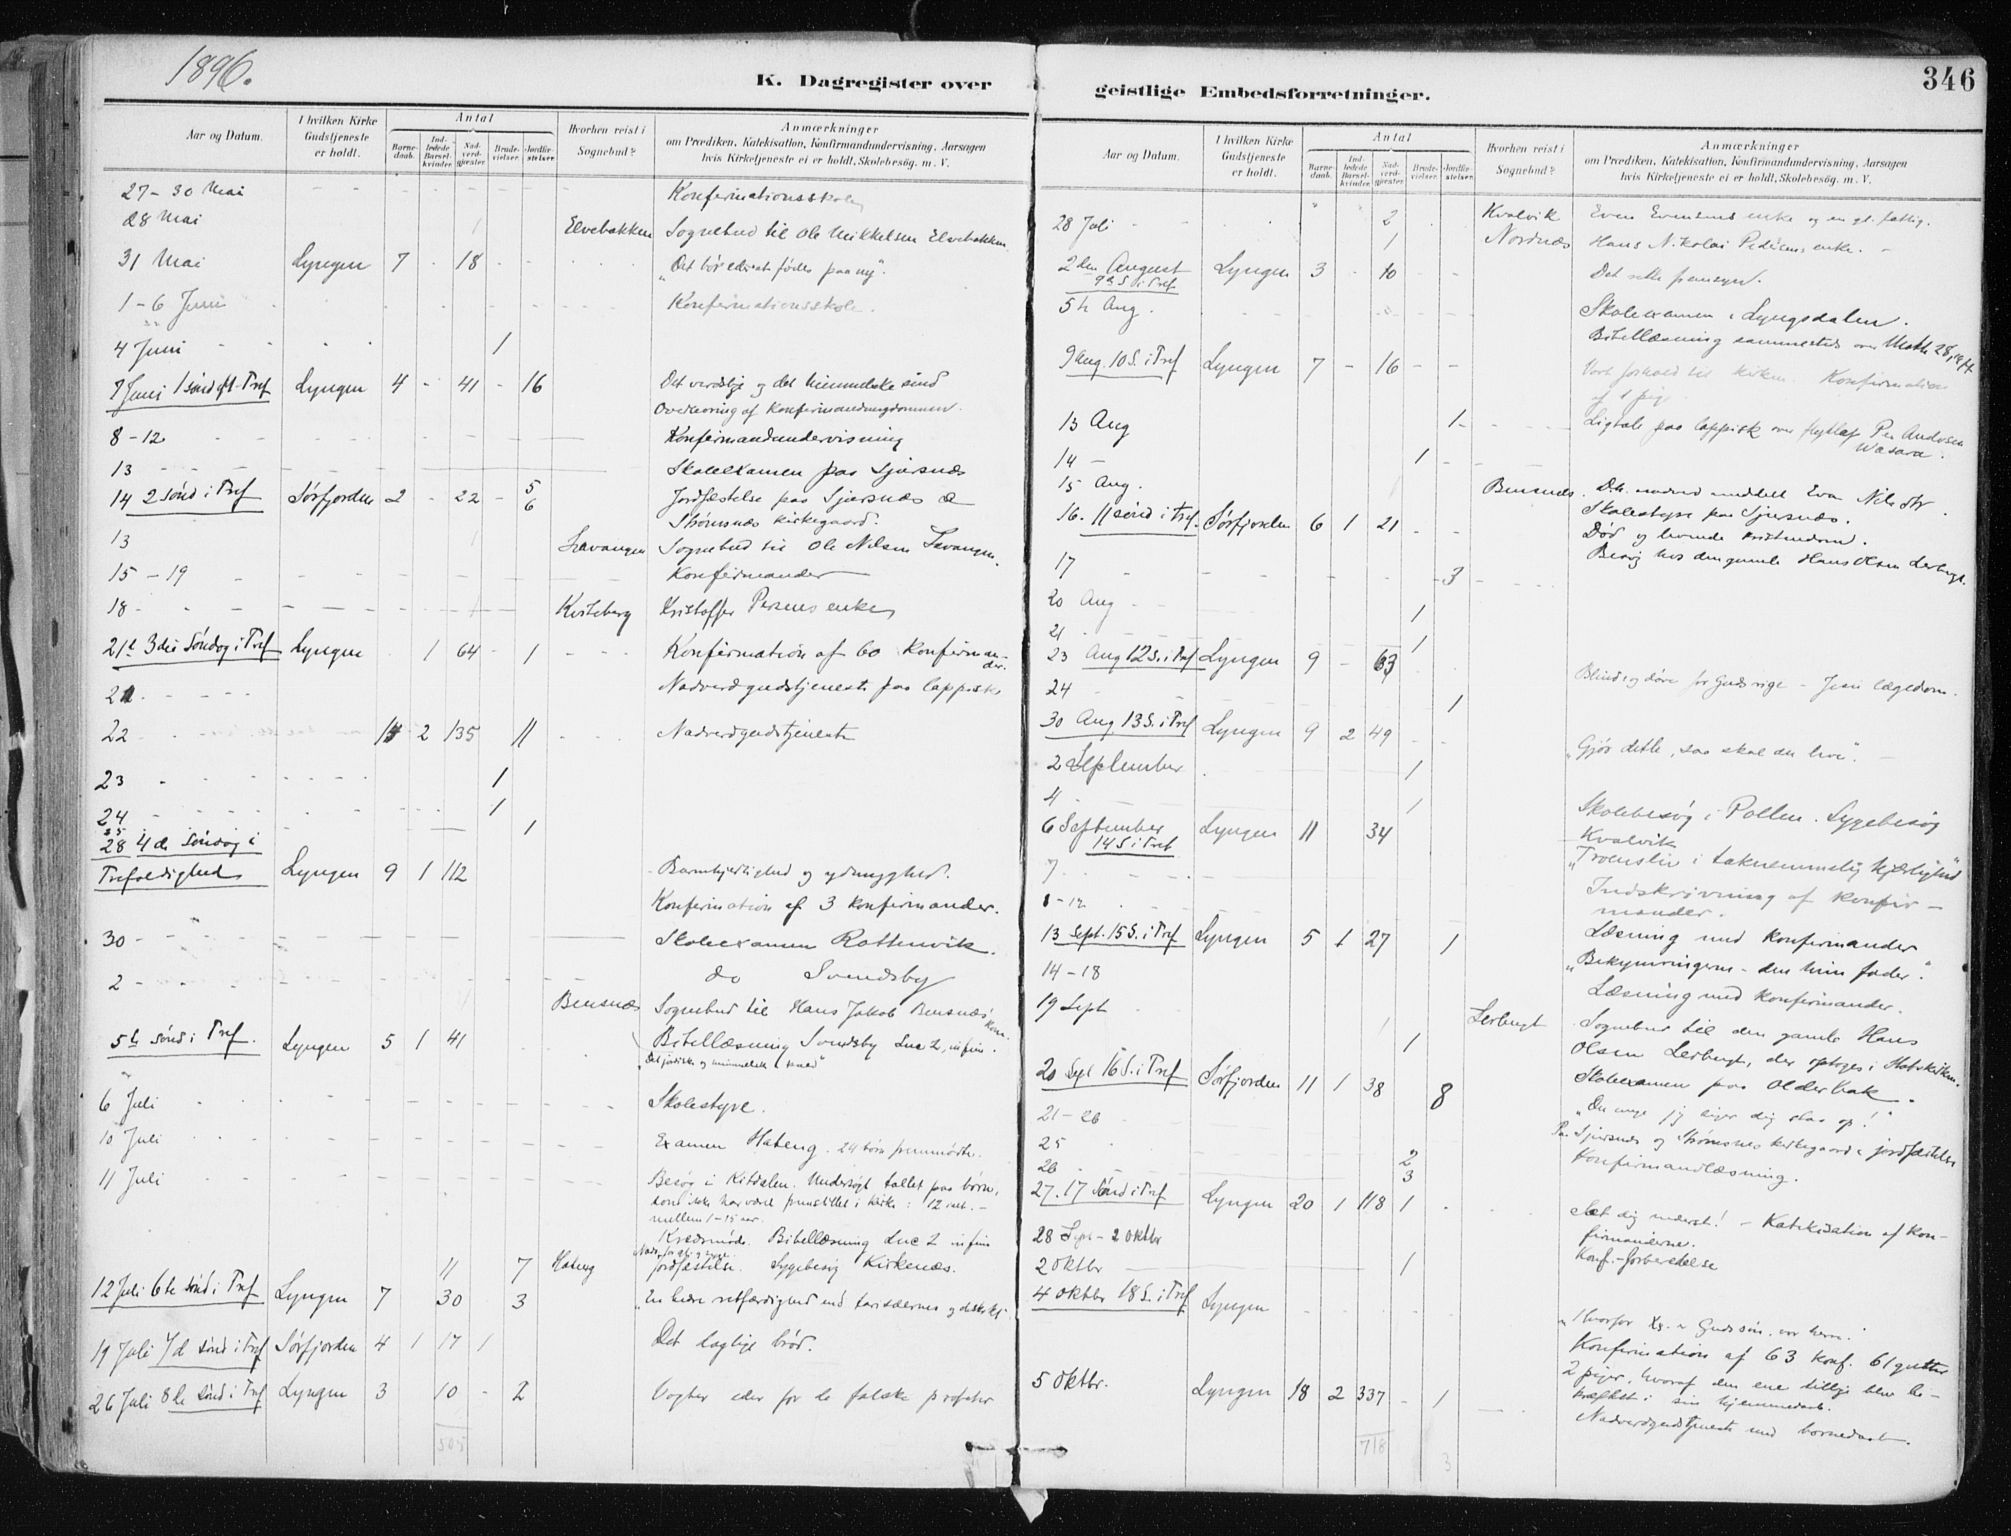 1896.
K. Dagregister over
Aar og Datum. I hvilken Kirke Gudstjeneste er holdt. Antal Barnedaab. Indledede Barselkvinder. Nadverdgjæster. Brudevielser. Jordfæstelser. Hvorhen reist i Sognebud? Anmærkninger
om Prædiken, Katekisation, Konfirmandundervisning, Aarsagen
hvis Kirketjeneste ei er holdt, Skolebesøg. m. V.
27-30 Mai Konfirmationsskole
28 Mai 1 Elvebakken Sognebud til Ole Mikkelsen Elvebakken
31 Mai Lyngen 7 18 „Det bør eder at fødes paa ny".
1-6 Juni Konfirmationsskole.
4 Juni 1
7 Juni 1 sønd eft. Tref Lyngen 4 - 41 - 16 Det verdslige og det himmelske sind
Overhøring af Konfirmandungdommen.
8-12 Konfirmandundervisning
13 Skoleexamen paa Sjursnæs
14 2 sønd i Tref Sørfjorden 2 - 22 - 5 6 Jordfæstelse paa Sjursnæs &
Strømsnæs kirkegaard.
13 1 Lavangen Sognebud til Ole Nilsen Lavangen.
15-19 Konfirmander
18 1 Kviteberg Kristoffer Persens enke
21de 3die Søndag i Tref Lyngen 1 64 - 1 Konfirmation af 60 Konfirman-
der.
21 Nadverdgudstjeneste paa lappisk
22 14 2 135 11 Nadverdgudstjeneste
23 1
24 1
25 1
28 4de Søndag i
Trefoldighed Lyngen 9 1 112 Barmhjertighed og ydmyghed.
Konfirmation af 3 konfirmander.
30 Skoleexamen Rottenvik.
2 do Svendsby
Bensnæs Sognebud til Hans Jakob Bensnæs' kone.
5te sønd i Tref. Lyngen 5 1 41 Bibellæsning Svendsby Luc 2, in fin.
6 Juli Skolestyre.
10 Juli Examen Hateng. 24 børn fremmødte.
11 Juli Besøg i Kitdalen. Undersøgt tallet paa børn,
som ikke har været fremstillet i kirke: 12
mellem 1-15 aar.
Kredsmøde. Bibellæsning Luc 2 in fin
11 7 Hateng Jordfæstelse. Sygebesøg Kirkenæs.
12 Juli 6te sønd i Tref Lyngen 7 30 3 „En bedre retfærdighed end farisæernes og de skriftkl.
19 Juli 7de sønd i Tref Sørfjorden 4 1 17 1 Det daglige brød.
26 Juli 8de sønd i Tref Lyngen 3 10 - 2 Vogter eder for de falske profeter
505
346
geistlige Embedsforretninger.
Aar og Datum. I hvilken Kirke Gudstjeneste er holdt. Antal Barnedaab. Indledede Barselkvinder. Nadverdgjæster. Brudevielser. Jordfæstelser. Hvorhen reist i Sognebud? Anmærkninger
om Prædiken, Katekisation, Konfirmandundervisning, Aarsagen
hvis Kirketjeneste ei er holdt, Skolebesøg. m. V.
28 Juli 2 Kvalvik Even Evensens enke og en gl. fattig.
1 Nordnæs Hans Nikolai Pedersens enke.
2den August Lyngen 3 - 10 Det rette fremsyn.
9de S. i Tref
5te Aug. Skoleexamen i Lyngsdalen.
Bibellæsning sammesteds over Matth 28,
9 Aug. 10 S. i Tref Lyngen 7 - 16 Vort forhold til kirken. Konfirmation
af 1 pige
13 Aug 1 Ligtale paa lappisk over flytlap Per Andersen
Wasara.
14 1
15 Aug. Bensnæs
16. 11 sønd i Tref. Sørfjorden 6 1 21 Skolestyre paa Sjursnæs.
Død og levende kristendom.
17 3 Besøg hos den gamle Hans Olsen Lerbugt.
20 Aug 1
21 1
23 Aug 12 S. i Tref Lyngen 9 - 63 Blinde og døve for Guds rige - Jesu lægedom.
24 1
30 Aug 13 S. i Tref Lyngen 9 2 49 „Gjør dette, saa skal du leve".
2 September 1
4 1 Skolebesøg i Pollen. Sygebesøg
Kvalvik
6 September Lyngen 11 34 „Troensliv i taknemmelig kjærlighed"
14 S i Tref
7 Indskrivning af konfir-
mander.
8-12 Læsning med konfirmander
13 Sept. 15 S. i Tref Lyngen 5 1 27 1 „Bekymringerne - den himm. fader".
14-18 Læsning med konfirmander.
19 Sept 1 1 Lerbugt Sognebud til den gamle Hans
Olsen Lerbugt, der optoges i Statskirken.
Skoleexamen paa Olderbak.
20 Sept 16 S. i Tref Sørfjorden 11 1 38 8 „Du unge jeg siger dig staa op!"
Paa Sjursnæs og Strømsnes kirkegaarde jordfæstelse
21-26 Konfirmandlæsning.
25 2
26 3
27. 17 Sønd i Tref Lyngen 20 1 118 1 Sæt dig nederst! - Katekisation af kon-
firmanderne.
28 Sept - 2 Oktbr Konf.-forberedelse
2 Oktbr 1
4 Oktbr 18 S. i Tref Lyngen
Konfirmation af 63 konf. 61 gutter
2 piger, hvoraf den ene tillige blev be-
kræftet i sin hjemmedaab.
5 Oktbr. Lyngen 18 2 337 - 1 Nadverdgudstjeneste med barnedaab.
718 3